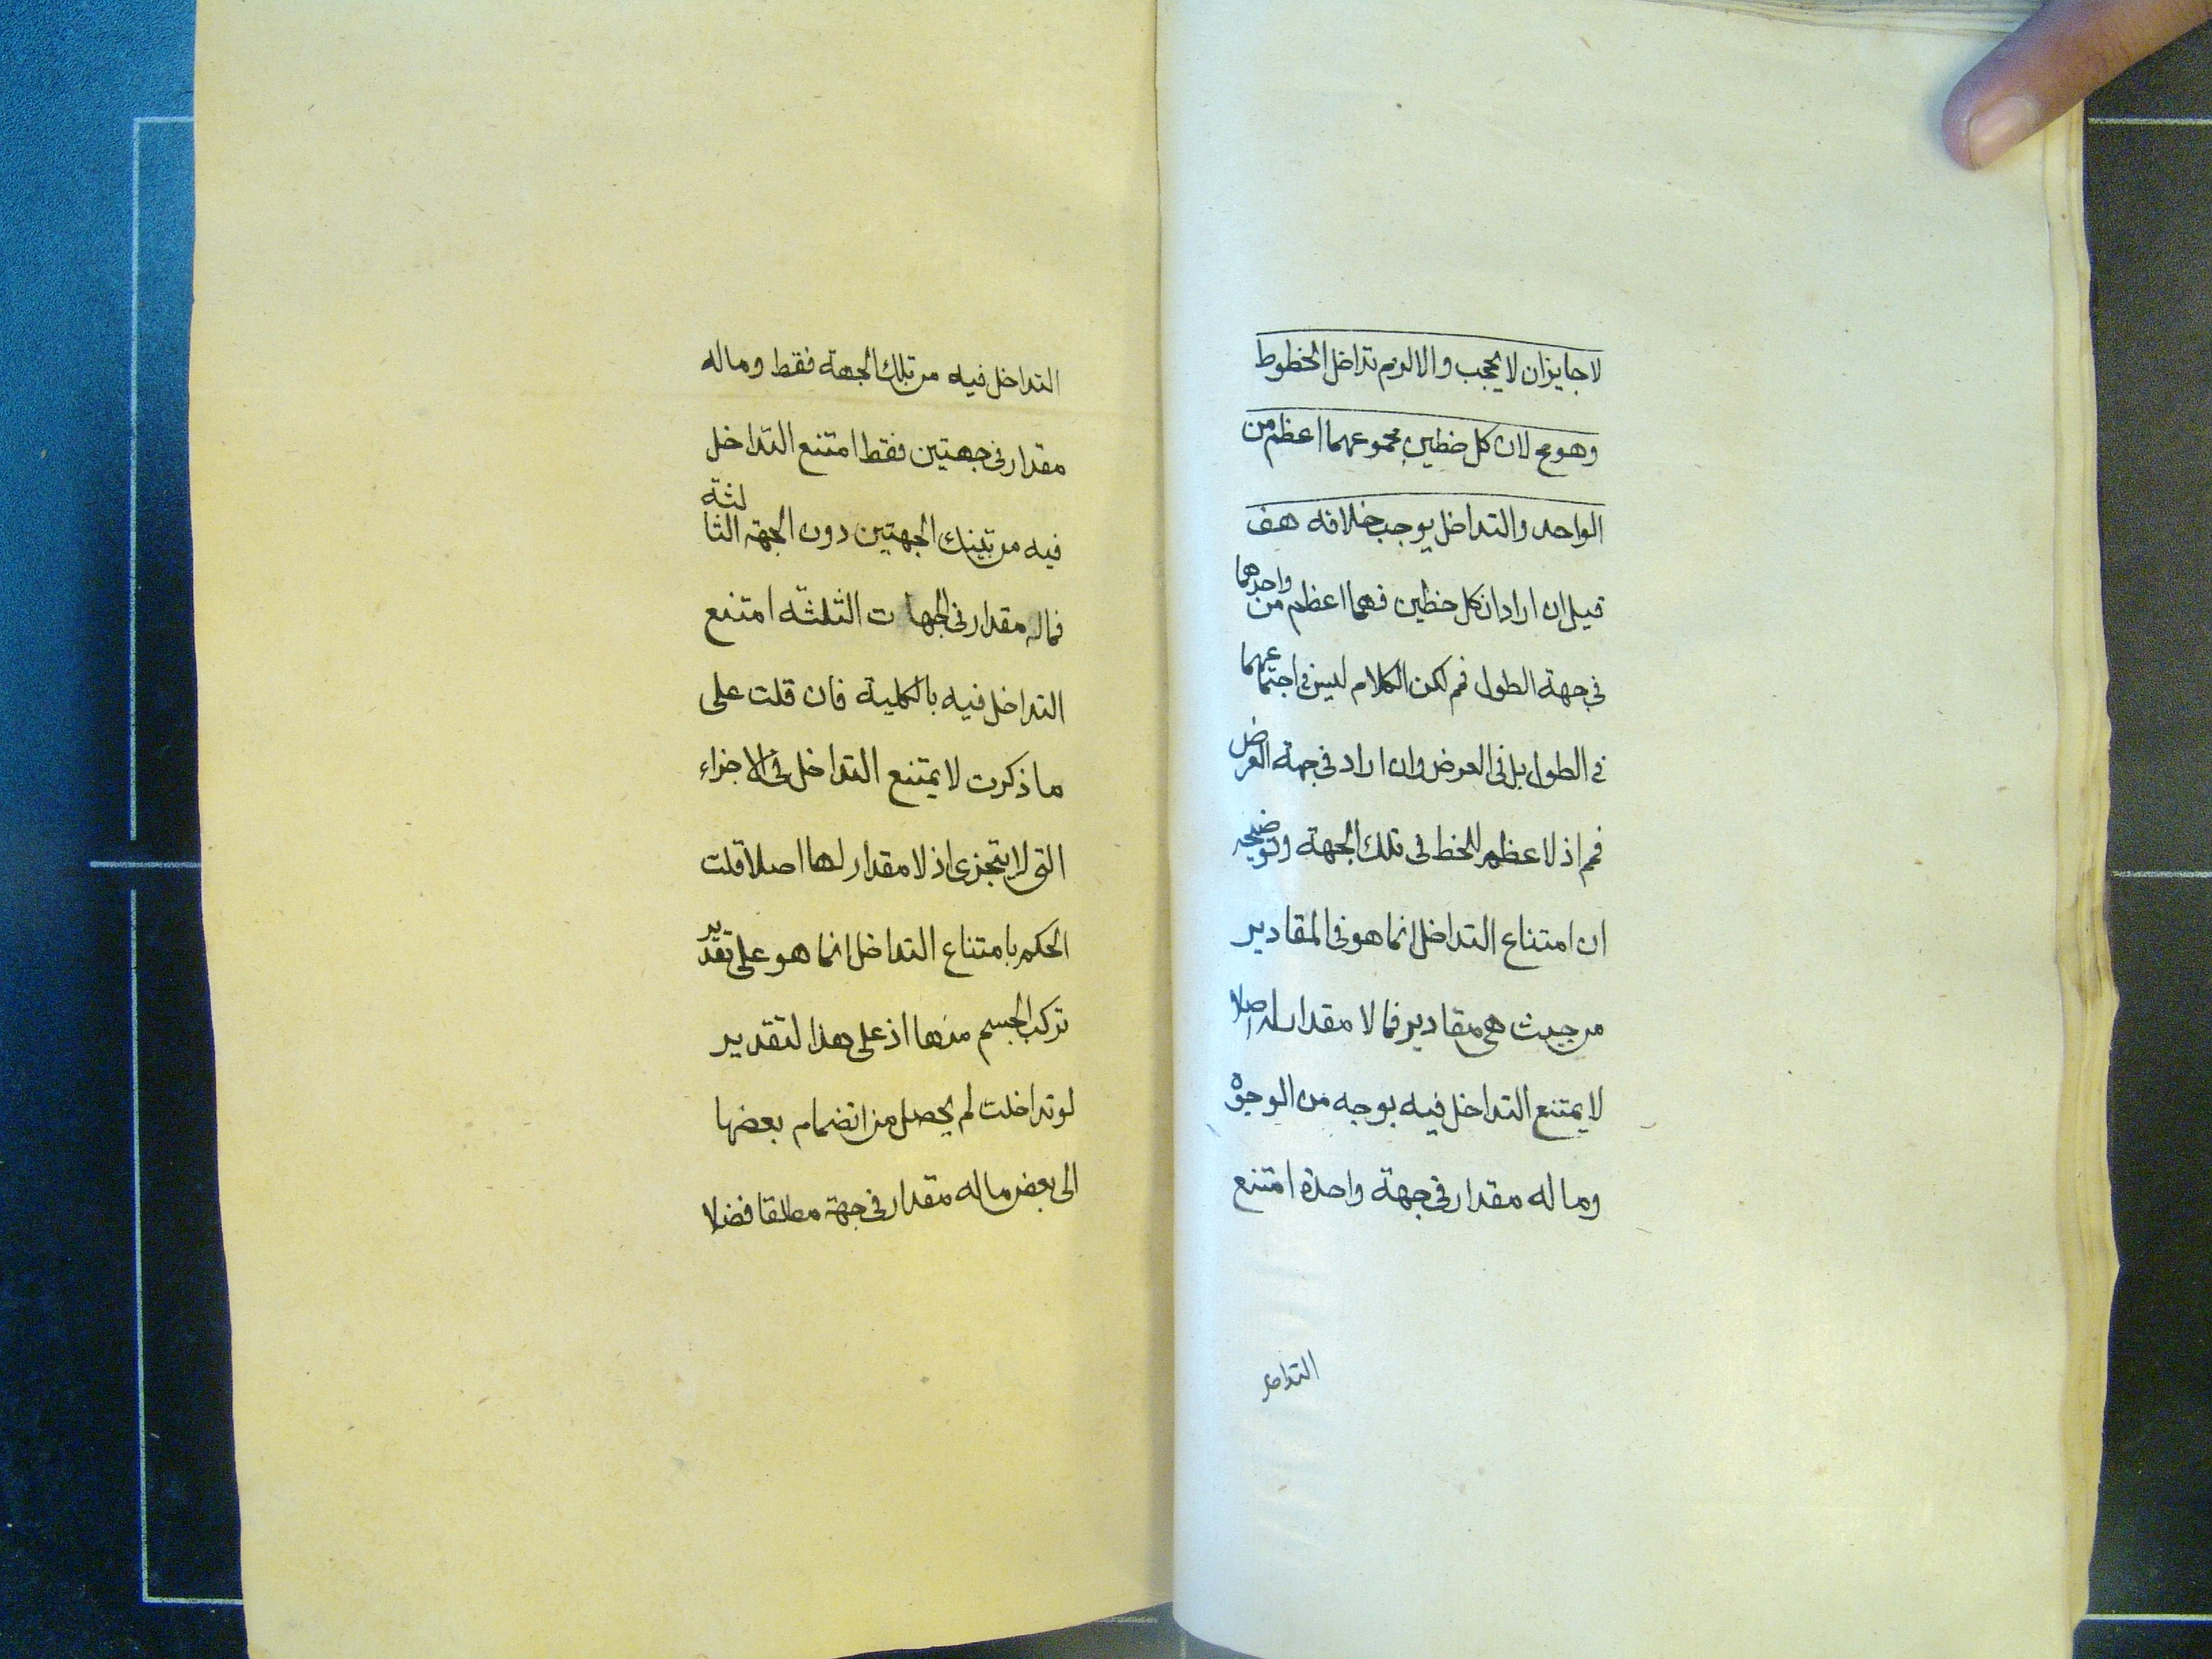 لا جايزان لا يحجب والا لزم تداخل الخطوط
وهو مح لان كل خطين مجموعهما اعظم من
الواحد والتداخل يوجب خلافه هف
قيل ان اراد ان كل خطين فهما اعظم من واحدهما
فى جهة الطول فم لكن الكلام ليس فى اجتماعهما
فى الطول بل فى العرض وان اراد فى جهة العرض
فمم اذ لا عظم للخط فى تلك الجهة وتوضيحه
ان امتناع التداخل انما هو فى المقادير
من حيث هى مقادير فما لا مقدار له اصلا
لا يمتنع التداخل فيه بوجه من الوجوه
وما له مقدار فى جهة واحدة امتنع
التداخل
التداخل فيه من تلك الجهة فقط وما له
مقدار فى جهتين فقط امتنع التداخل
فيه من تينك الجهتين دون الجهة الثالثة
فما له مقدار فى الجهات الثلثة امتنع
التداخل فيه بالكلية فان قلت على
ما ذكرت لا يمتنع التداخل فى الاجزاء
التى لا يتجزى اذ لا مقدار لها اصلا قلت
الحكم بامتناع التداخل انما هو على تقدير
تركب الجسم منها اذ على هذا لتقدير
لو تداخلت لم يحصل من انضمام بعضها
الى بعض ما له مقدار فى جهة مطلقا فضلا